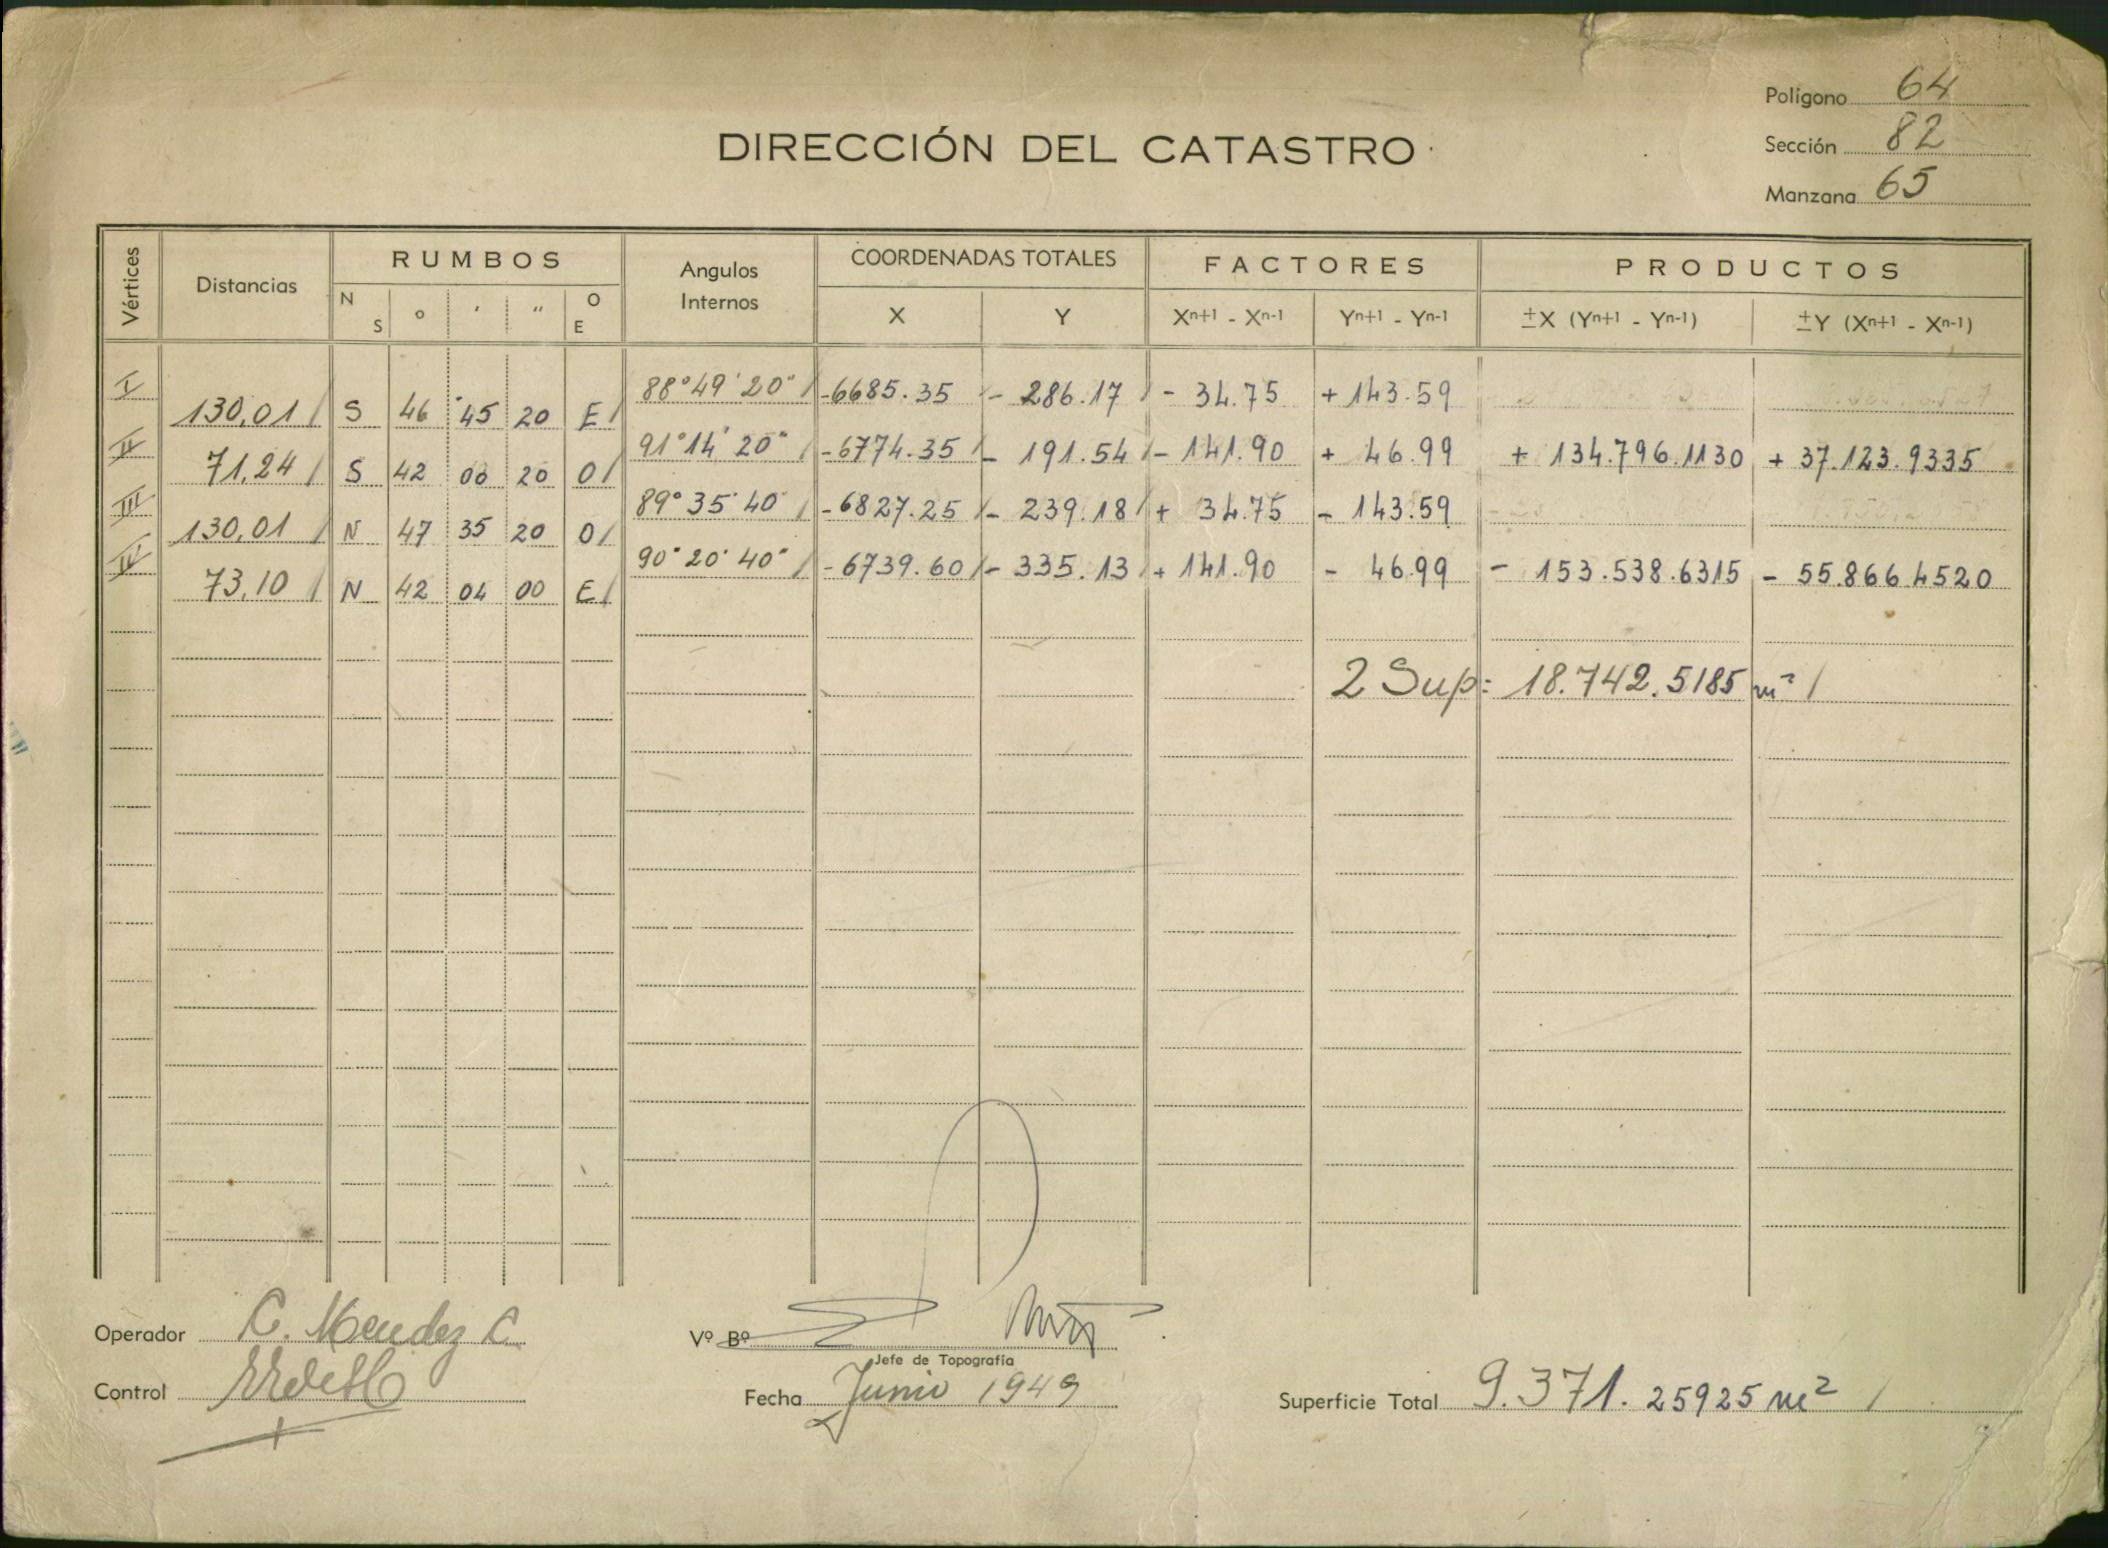 Polígono 64
DIRECCIÓN DEL CATASTRO
Sección 82
Manzana 65
Vértices Distancias RUMBOS Angulos Internos COORDENADAS TOTALES FACTORES PRODUCTOS
N S ° ' " O E X Y Xn+1 - Xn-1 Yn+1 - Yn-1 ±X (Yn+1 - Yn-1) ±Y (Xn+1 - Xn-1)
I 88°49'20" -6685.35 - 286.17 - 34.75 + 143.59
130,01 S 46 45 20 E
II 91°14'20" -6774.35 - 191.54 - 141.90 + 46.99 + 134.796.1130 + 37.123.9335
71,24 S 42 00 20 O
III 89°35'40" -6827.25 - 239.18 + 34.75 - 143.59
130,01 N 47 35 20 O
IV 90°20'40" -6739.60 - 335.13 + 141.90 - 46.99 - 153.538.6315 - 55.866.4520
73,10 N 42 04 00 E
2 Sup: 18.742.5185 m²
Operador C. Mendez C.
Vº Bº
Jefe de Topografía
Control
Fecha Junio 1949
Superficie Total 9.371.25925 m²